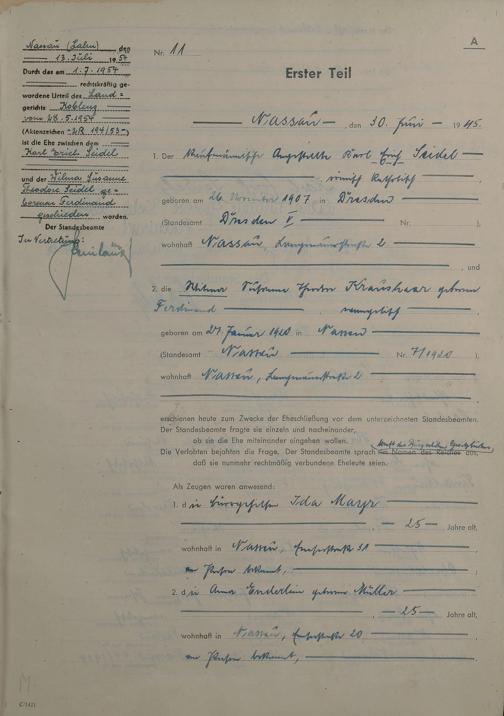 Nassau (Lahn), den
13. Juli 1954
Durch das am 1.7.1954
rechtskräftig ge-
wordene Urteil des Land-
gerichts Koblenz
vom 28.5.1954
(Aktenzeichen 2R 194/53)
ist die Ehe zwischen dem
Karl Erich Seidel
und der Wilma Susanne
Theodore Seidel ge-
borenen Ferdinand
geschieden worden.
Der Standesbeamte
In Vertretung:
A
Nr. 11
Erster Teil
Nassau, den 30. Juni 1945.
1. Der Kaufmännische Angestellte Karl Erich Seidel
römisch katholisch
geboren am 26. November 1907 in Dresden
(Standesamt Dresden V Nr. ),
wohnhaft Nassau, 2
, und
2. die Wilma Susanne Theodore Kraushaar geborene
Ferdinand, evangelisch
geboren am 27. Januar 1920 in Nassau
(Standesamt Nassau Nr. 7/1920 ),
wohnhaft Nassau, 2
erschienen heute zum Zwecke der Eheschließung vor dem unterzeichneten Standesbeamten.
Der Standesbeamte fragte sie einzeln und nacheinander,
ob sie die Ehe miteinander eingehen wollen.
Die Verlobten bejahten die Frage. Der Standesbeamte sprach im Namen des Reiches aus,
daß sie nunmehr rechtmäßig verbundene Eheleute seien.
Als Zeugen waren anwesend:
1. die Bürogehilfin Ida Mayr
, 25 Jahre alt,
wohnhaft in Nassau, Emserstraße 31
an Person bekannt,
2. die Anna Enderlein geborene Müller
, 25 Jahre alt,
wohnhaft in Nassau, Emserstraße 20
an Person bekannt,